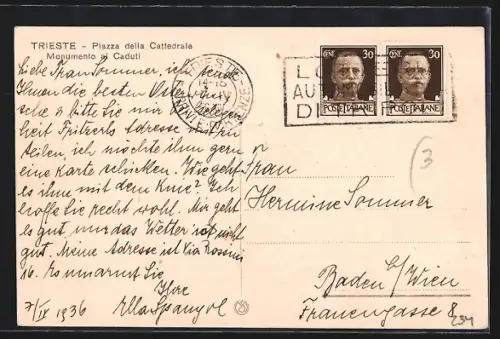 TRIESTE - Piazza della Cattedrale
Monumento ai Caduti
Liebe Frau Sommer, ich sende
Ihnen die besten Osterwün-
sche & bitte Sie mir
heit Adresse mitzu
teilen, ich möchte ihm gern
eine Karte schicken. Wie geht
es ihm mit dem Knie? Ich
hoffe Sie recht wohl. Mir geht
es gut, nur das Wetter ist nicht
gut. Meine Adresse ist Via Rossini
16. Es umarmt Sie
Ihre
Ella Spangol
7/IV 1936
TRIESTE
CENT 30
POSTE ITALIANE
CENT 30
POSTE ITALIANE
Frau
Hermine Sommer
Baden b/Wien
Frauengasse 8
(3
254